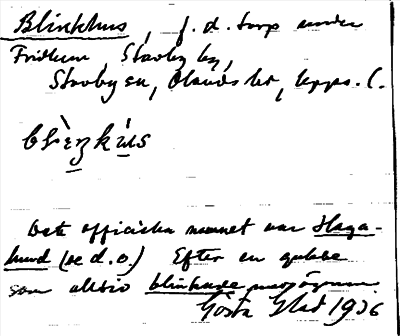 Blinkhus, f.d. torp under
Fridhem, Stavby by,
Stavby sn, Olands hd, Upps. l.
Det officiella namnet var Haga-
lund (se d.o.) Efter en gubbe
som alltid blinkade med ögonen.
Gösta Blad 1936